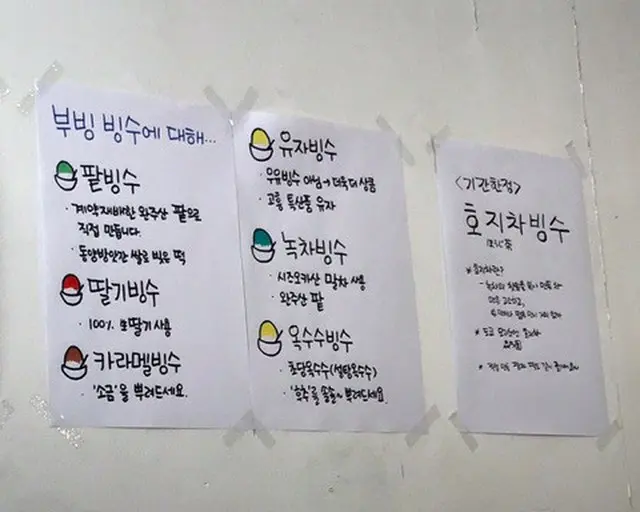 부빙 빙수에 대해...
팥빙수
· 계약재배한 완주산 팥으로
직접 만듭니다.
· 동양방앗간 쌀로 빚은 떡
딸기빙수
· 100% 생딸기 사용
카라멜빙수
· '소금'을 뿌려드세요.
유자빙수
· 우유빙수 아님 → 더욱 더 상큼
· 고흥 특산품 유자
녹차빙수
· 시즈오카산 말차 사용
· 완주산 팥
옥수수빙수
· 초당옥수수(설탕옥수수)
· '후추'를 솔솔~ 뿌려드세요.
<기간한정>
호지차빙수
ほうじ茶
* 호지차란?